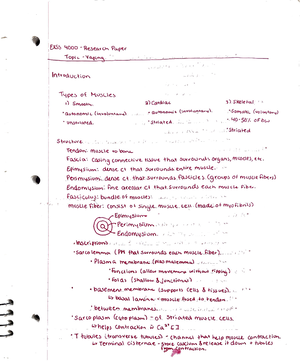 EXSS 4000 - Research Paper
Topic: Vaping
Introduction
Types of Muscles
1) Smooth 2) Cardiac 3) Skeletal
• autonomic (involuntary) • autonomic (involuntary) • Somatic (voluntary)
• unstriated • Striated • 40-50% of BW
• Striated
Structure
Tendon: muscle to bone
Fascia: casing connective tissue that surrounds organs, muscles, etc.
Epimysium: dense CT that surrounds entire muscle.
Perimysium: dense CT that surrounds fascicles (groups of muscle fibers)
Endomysium: fine areolar CT that surrounds each muscle fiber.
Fasciculi: bundle of muscles
muscle fiber: consist of single muscle cell (made of myofibrils)
Epimysium
Perimysium
Endomysium
• Sarcolemma (PM that surrounds each muscle fiber)
• Plasma membrane (plasmalemma)
• functions (allow movement without ripping)
• folds (shallow & junctional)
• basement membrane (supports cells & tissues)
↳ basal lamina - muscle fused to tendon
• between membranes
• Sarcoplasm (cytoplasm) - of striated muscle cells
↳ helps contraction
• T tubules (transverse tubules) - channels that help muscle contraction
↳ Terminal cisternae - store calcium & release it down t tubules